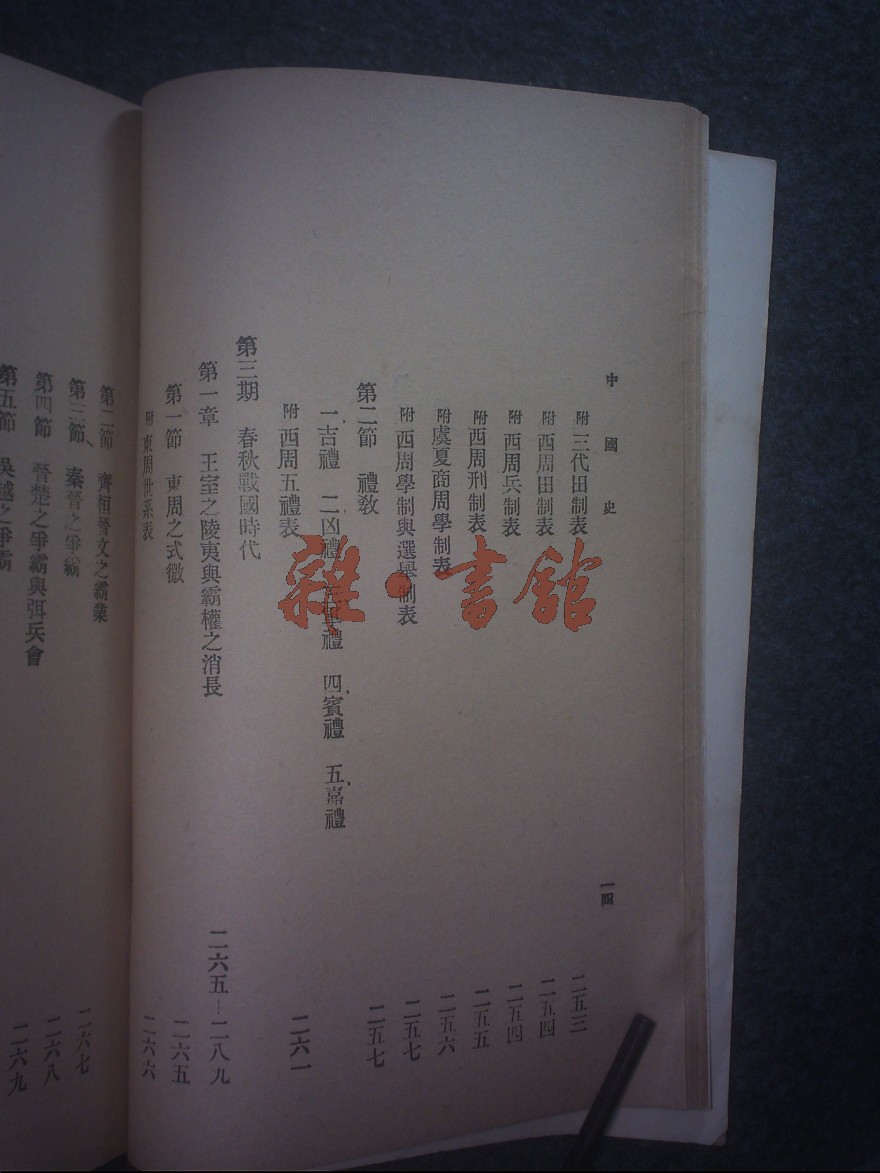 中國史
一四
附 三代田制表 二五三
附 西周田制表 二五四
附 西周兵制表 二五四
附 西周刑制表 二五五
附 虞夏商周學制表 二五六
附 西周學制與選舉制表 二五七
第二節 禮敎 二五七
一、吉禮 二、凶禮 三、軍禮 四、賓禮 五、嘉禮
附 西周五禮表 二六一
第三期 春秋戰國時代
第一章 王室之陵夷與霸權之消長 二六五—二八九
第一節 東周之式微 二六五
附 東周世系表 二六六
第二節 齊桓晉文之霸業
第三節 秦晉之爭霸 二六七
第四節 晉楚之爭霸與弭兵會 二六八
第五節 吳越之爭霸 二六九
雜·書館